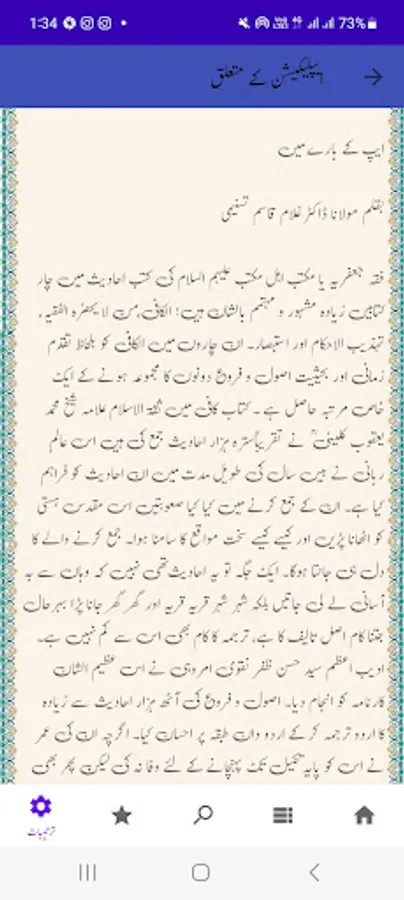 1:34
73%
ایپلیکیشن کے متعلق
ایپ کے بارے میں
بقلم مولانا ڈاکٹر غلام قاسم تسنیمی
فقہ جعفریہ یا مکتب اہل مکتب علیہم السلام کی کتب احادیث میں چار
کتابیں زیادہ مشہور و مہتمم بالشان ہیں؛ الکافی،من لا یحضرہ الفقیہ،
تہذیب الاحکام اور استبصار۔ ان چاروں میں الکافی کو بلحاظ تقدم
زمانی اور بحیثیت اصول و فروع دونوں کا مجموعہ ہونے کے ایک
خاص مرتبہ حاصل ہے ۔ کتاب کافی میں ثقۃ الاسلام علامہ شیخ محمد
یعقوب کلینیؒ نے تقریباًسترہ ہزار احادیث جمع کی ہیں اس عالم
ربانی نے بیس سال کی طویل مدت میں ان احادیث کو فراہم
کیا ہے۔ ان کے جمع کرنے میں کیا کیا صعوبتیں اس مقدس ہستی
کو اٹھانا پڑیں اور کیسے کیسے سخت مواقع کا سامنا ہوا۔ جمع کرنے والے کا
دل ہی جانتا ہوگا۔ ایک جگہ تو یہ احادیث تھی نہیں کہ وہاں سے بہ
آسانی لے لی جاتیں بلکہ شہر شہر قریہ قریہ اور گھر گھر جانا پڑا بہرحال
جتنا کام اصل تالیف کا ہے، ترجمہ کا کام بھی اس سے کم نہیں ہے۔
ادیب اعظم سید حسن ظفر نقوی امروہی نے اس عظیم الشان
کارنامہ کو انجام دیا۔ اصول و فروع کی آٹھ ہزار احادیث سے زیادہ
کا اردو ترجمہ کرکے اردو داں طبقہ پر احسان کیا۔ اگرچہ ان کی عمر
نے اس کو پایہ تکمیل تک پہنچانے کے لئے وفا نہ کی لیکن پھر بھی
ترتیبات